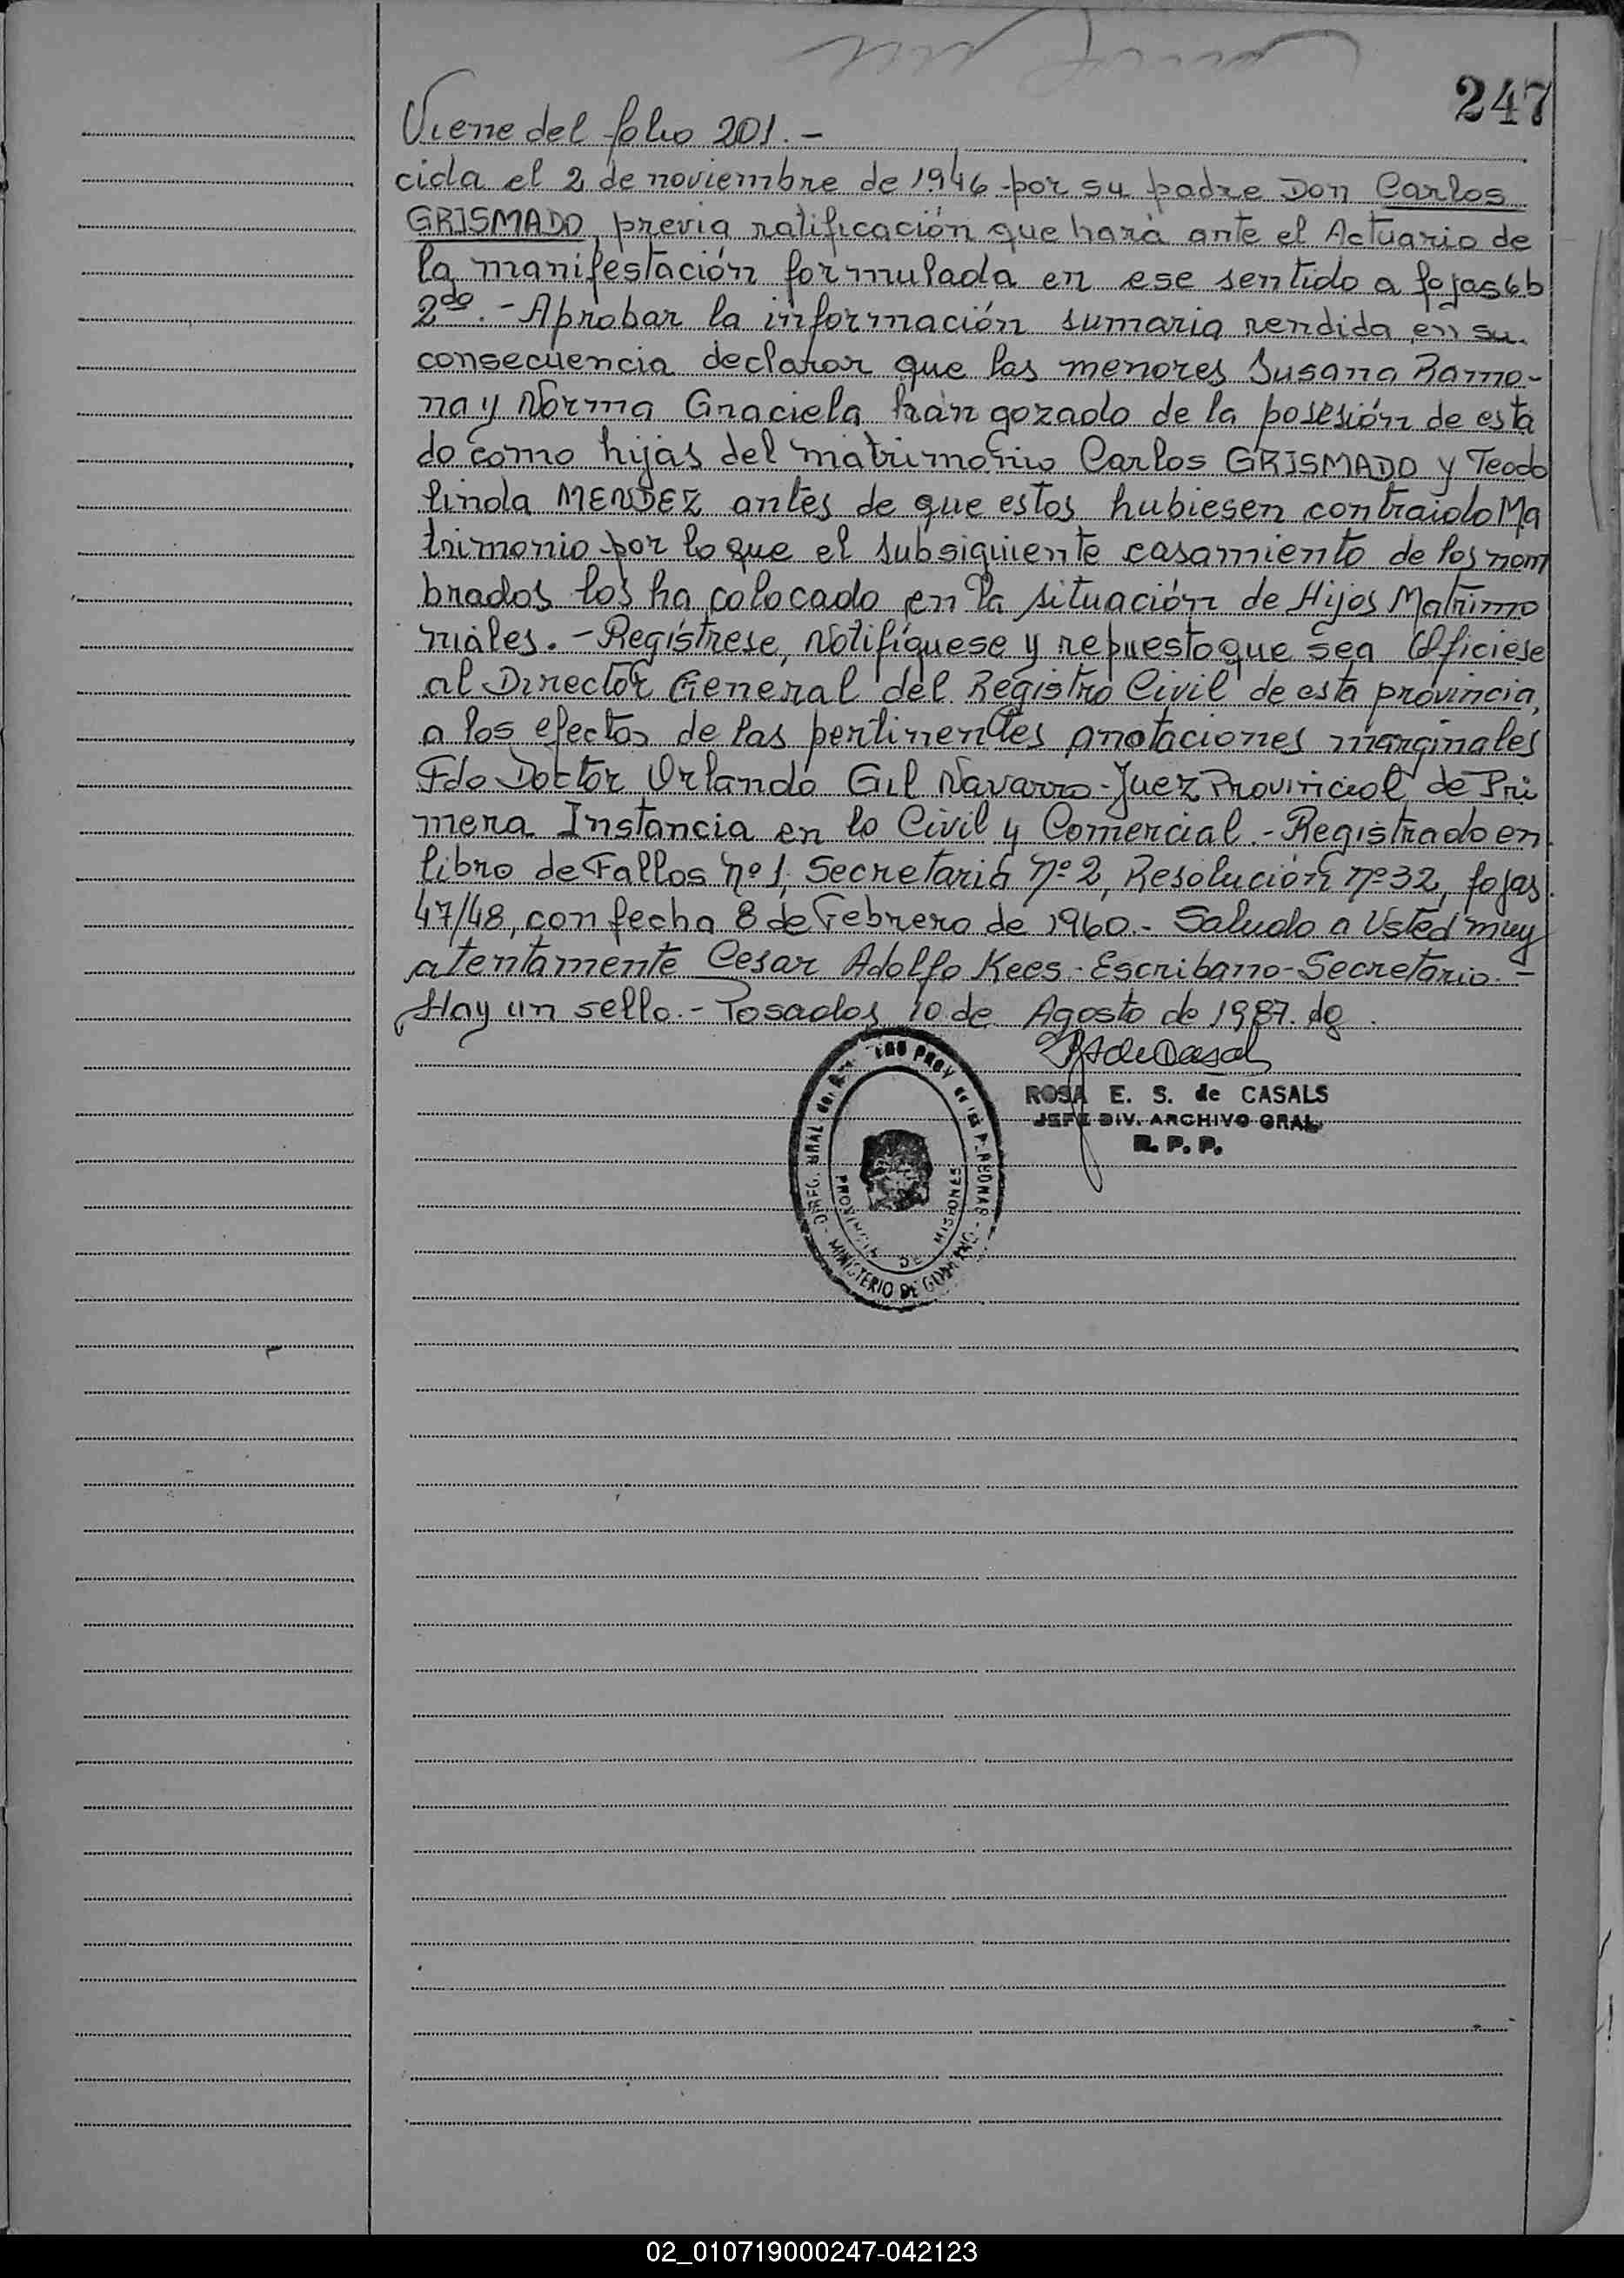 247
Viene del folio 201.-
cida el 2 de noviembre de 1946 por su padre Don Carlos
GRISMADO, previa ratificación que hará ante el Actuario de
la manifestación formulada en ese sentido a fojas 6b
2do.- Aprobar la información sumaria rendida, en su
consecuencia declarar que las menores Susana Ramo-
na y Norma Graciela han gozado de la posesión de esta
do como hijas del matrimonio Carlos GRISMADO y Teodo
linda MENDEZ antes de que estos hubiesen contraido Ma
trimonio por lo que el subsiguiente casamiento de los nom
brados los ha colocado en la situación de Hijos Matrimo
niales.- Regístrese, Notifíquese y repuesto que sea Ofíciese
al Director General del Registro Civil de esta provincia,
a los efectos de las pertinentes anotaciones marginales
Fdo Doctor Orlando Gil Navarro - Juez Provincial de Pri
mera Instancia en lo Civil y Comercial.- Registrado en
libro de Fallos nº 1, Secretaria nº 2, Resolución nº 32, fojas
47/48, con fecha 8 de Febrero de 1960.- Saludo a Usted muy
atentamente Cesar Adolfo Kees - Escribano-Secretario.-
Hay un sello.- Posadas 10 de Agosto de 1987. dg.
ROSA E. S. de CASALS
JEFE DIV. ARCHIVO GRAL.
R. P. P.
PROVINCIA DE MISIONES
MINISTERIO DE GOBIERNO
02_010719000247-042123